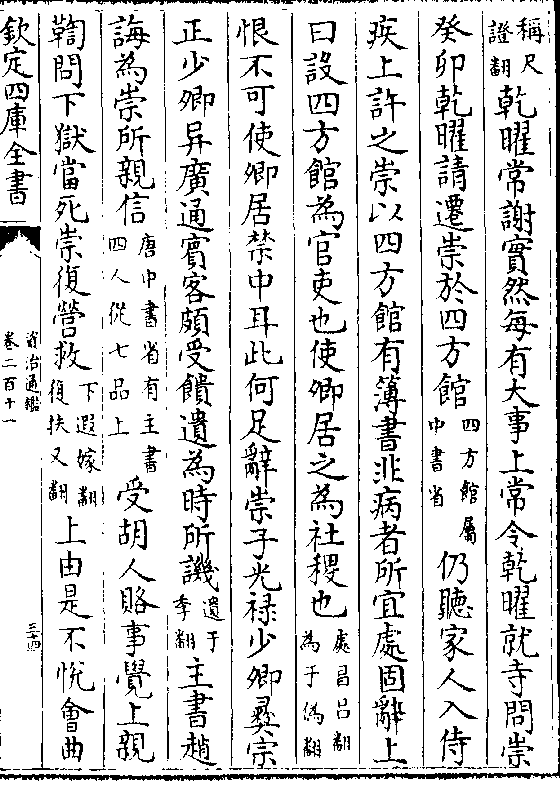 稱尺證翻乾曜常謝實然每有大事上常令乾曜就寺問崇
癸卯乾曜請遷崇於四方館四方館屬中書省仍聽家人入侍
疾上許之崇以四方館有簿書非病者所宜處固辭上
曰設四方館為官吏也使卿居之為社稷也處昌吕翻為于偽翻
恨不可使卿居禁中耳此何足辭崇子光禄少卿彞宗
正少卿异廣通賓客頗受饋遺為時所譏遺于季翻主書趙
誨為崇所親信唐中書省有主書四人從七品上受胡人賂事覺上親
鞫問下獄當死崇復營救下遐嫁翻復扶又翻上由是不悅會曲
欽定四庫全書
資治通鑑
卷二百十一
三十四